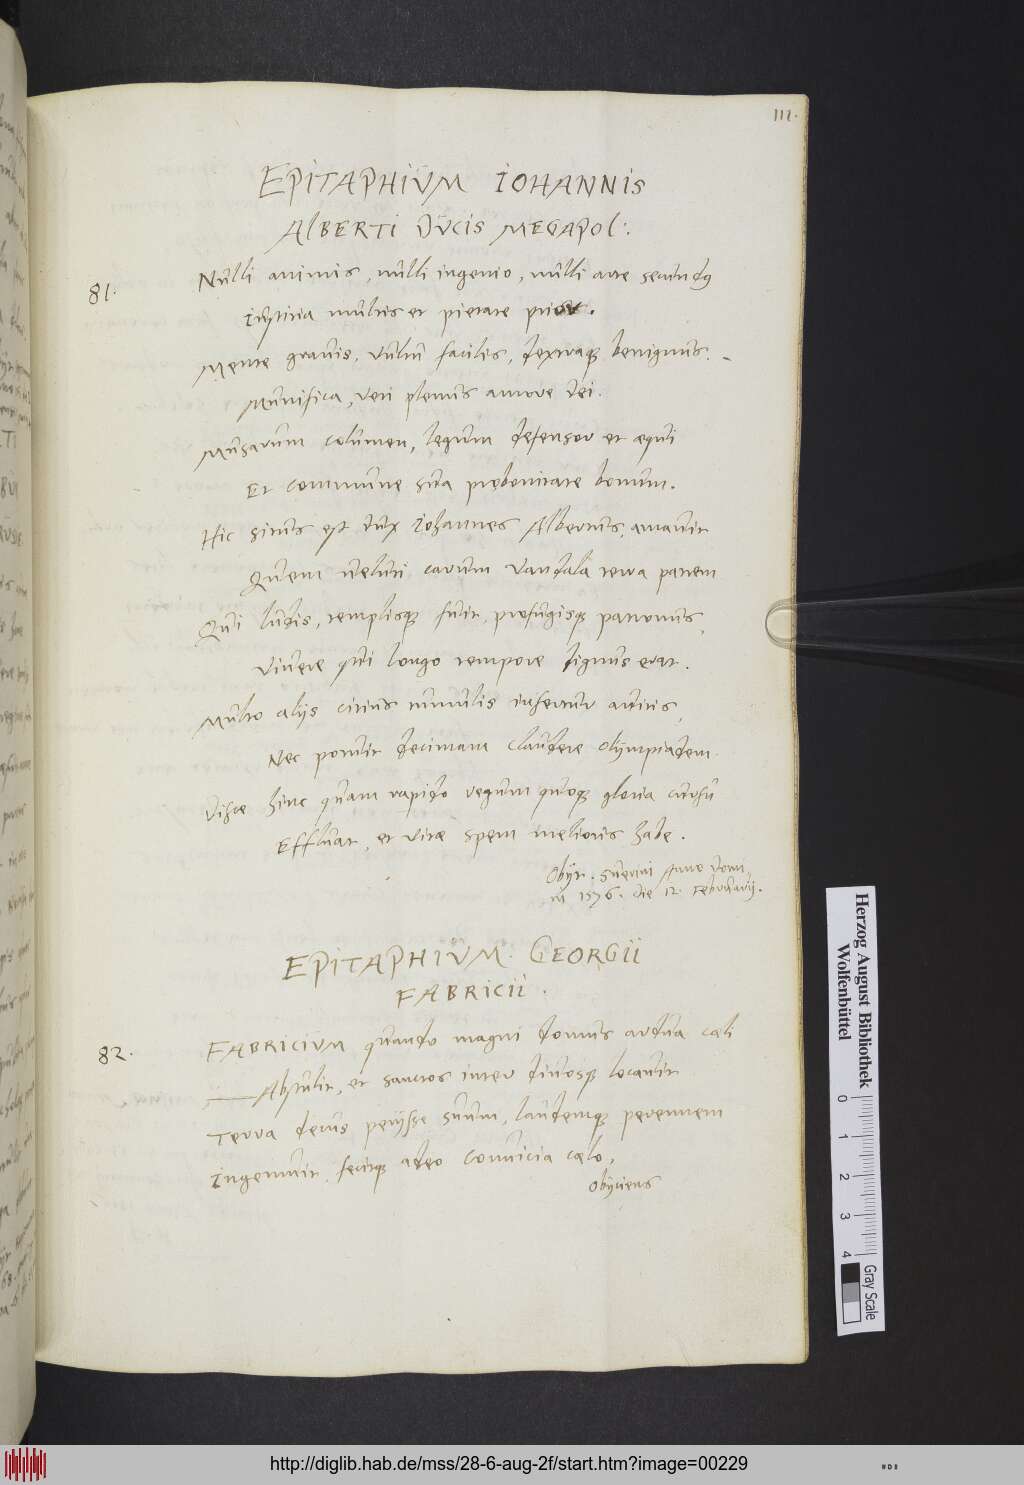 111.
EPITAPHIUM IOHANNIS
ALBERTI DUCIS MEGAPOL:.
81.
Nulli animis, nulli ingenio, nulli arte secundus
Iustitia multis et pietate prior.
Mente gravis, vultu facilis, dextraque benignus.
Munifica, veri plenus amore dei.
Musarum columen, legum defensor et aequi
Et commune sua pro bonitate bonum.
Hic situs est dux Iohannes Albertus, amavit
Quem veluti carum Vandala terra patrem
Qui ludis, templisque fuit, profugisque patronus,
Vivere qui longo tempore dignus erat.
Multo alijs citius tumulis infertur avitis,
Nec potuit decimam claudere Olympiadem.
Disce hinc quam rapido regum quoque gloria cursu
Effluat, et vitae spem melioris habe.
Obijt. Suerini Anno Domi,
ni 1576. die 12. Februarij.
EPITAPHIUM. GEORGII
FABRICII.
82.
FABRICIUM quando magni domus ardua caeli
Abstulit, et sanctos inter divosque locavit
Terra decus perijsse suum, laudemque perennem
Ingemuit, fecitque adeo convicia caelo,
Obijciens
Herzog August Bibliothek
Wolfenbüttel
0 1 2 3 4
Gray Scale
http://diglib.hab.de/mss/28-6-aug-2f/start.htm?image=00229